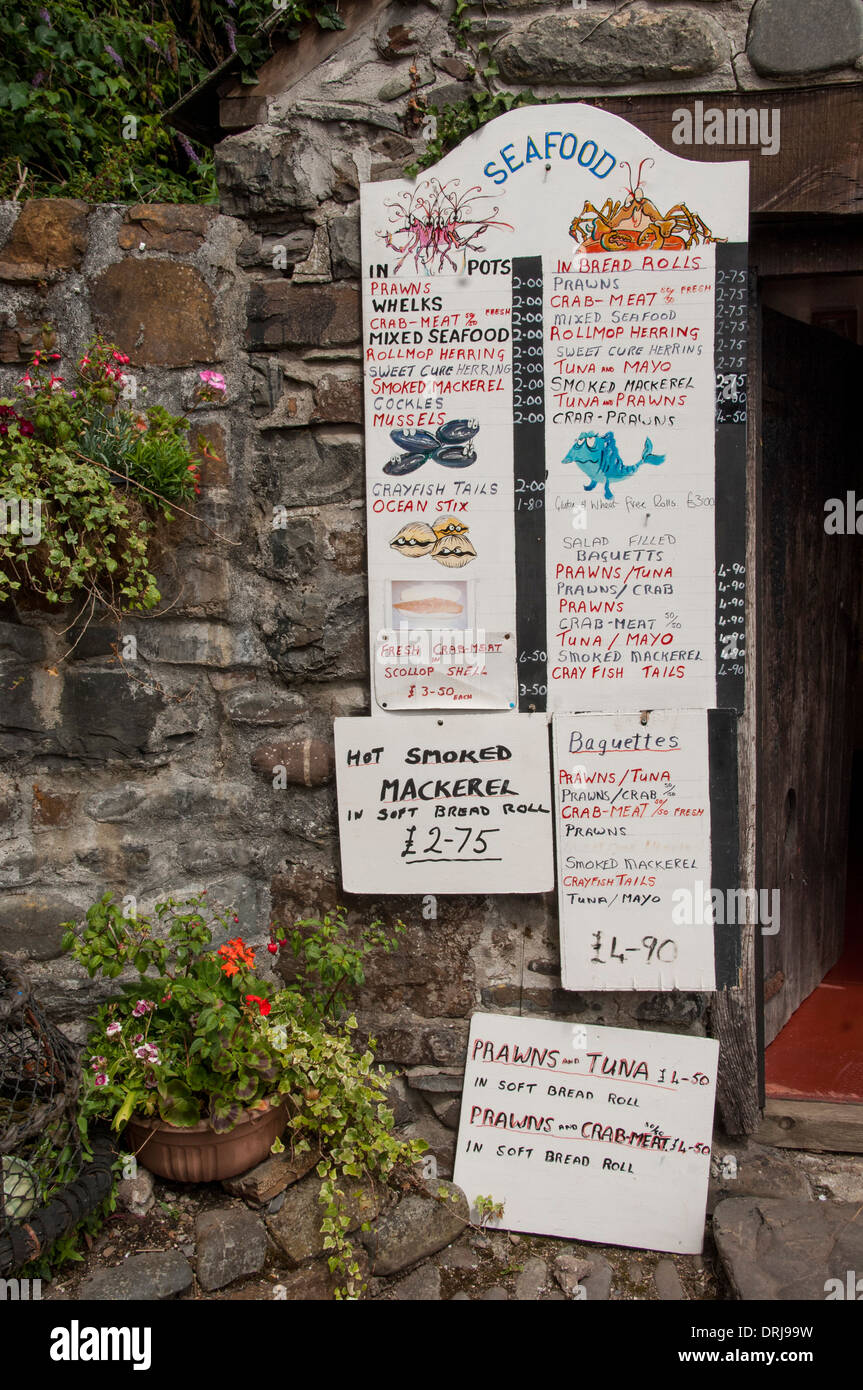 SEAFOOD
IN POTS
PRAWNS 2-00
WHELKS 2-00
CRAB-MEAT 50/50 FRESH 2-00
MIXED SEAFOOD 2-00
ROLLMOP HERRING 2-00
SWEET CURE HERRING 2-00
SMOKED MACKEREL 2-00
COCKLES 2-00
MUSSELS 2-00
CRAYFISH TAILS 2-00
OCEAN STIX 1-80
6-50
FRESH CRAB-MEAT
IN
SCOLLOP SHELL
£3-50 EACH
3-50
IN BREAD ROLLS
PRAWNS 2-75
CRAB-MEAT 50/50 FRESH 2-75
MIXED SEAFOOD 2-75
ROLLMOP HERRING 2-75
SWEET CURE HERRING 2-75
TUNA AND MAYO 2-75
SMOKED MACKEREL
TUNA AND PRAWNS 4-50
CRAB-PRAWNS 4-50
Gluten & Wheat Free Rolls £3.00
SALAD FILLED
BAGUETTS
PRAWNS/TUNA 4-90
PRAWNS/CRAB 4-90
PRAWNS 4-90
CRAB-MEAT 50/50 4-90
TUNA/MAYO 4-90
SMOKED MACKEREL
CRAYFISH TAILS 4-90
HOT SMOKED
MACKEREL
IN SOFT BREAD ROLL
£2-75
Baguettes
PRAWNS/TUNA
PRAWNS/CRAB 50/50
CRAB-MEAT 50/50 FRESH
PRAWNS
SMOKED MACKEREL
CRAYFISH TAILS
TUNA/MAYO
£4-90
PRAWNS AND TUNA £4-50
IN SOFT BREAD ROLL
PRAWNS AND CRAB-MEAT 50/50 £4-50
IN SOFT BREAD ROLL
alamy
alamy
Image ID: DRJ99W
www.alamy.com